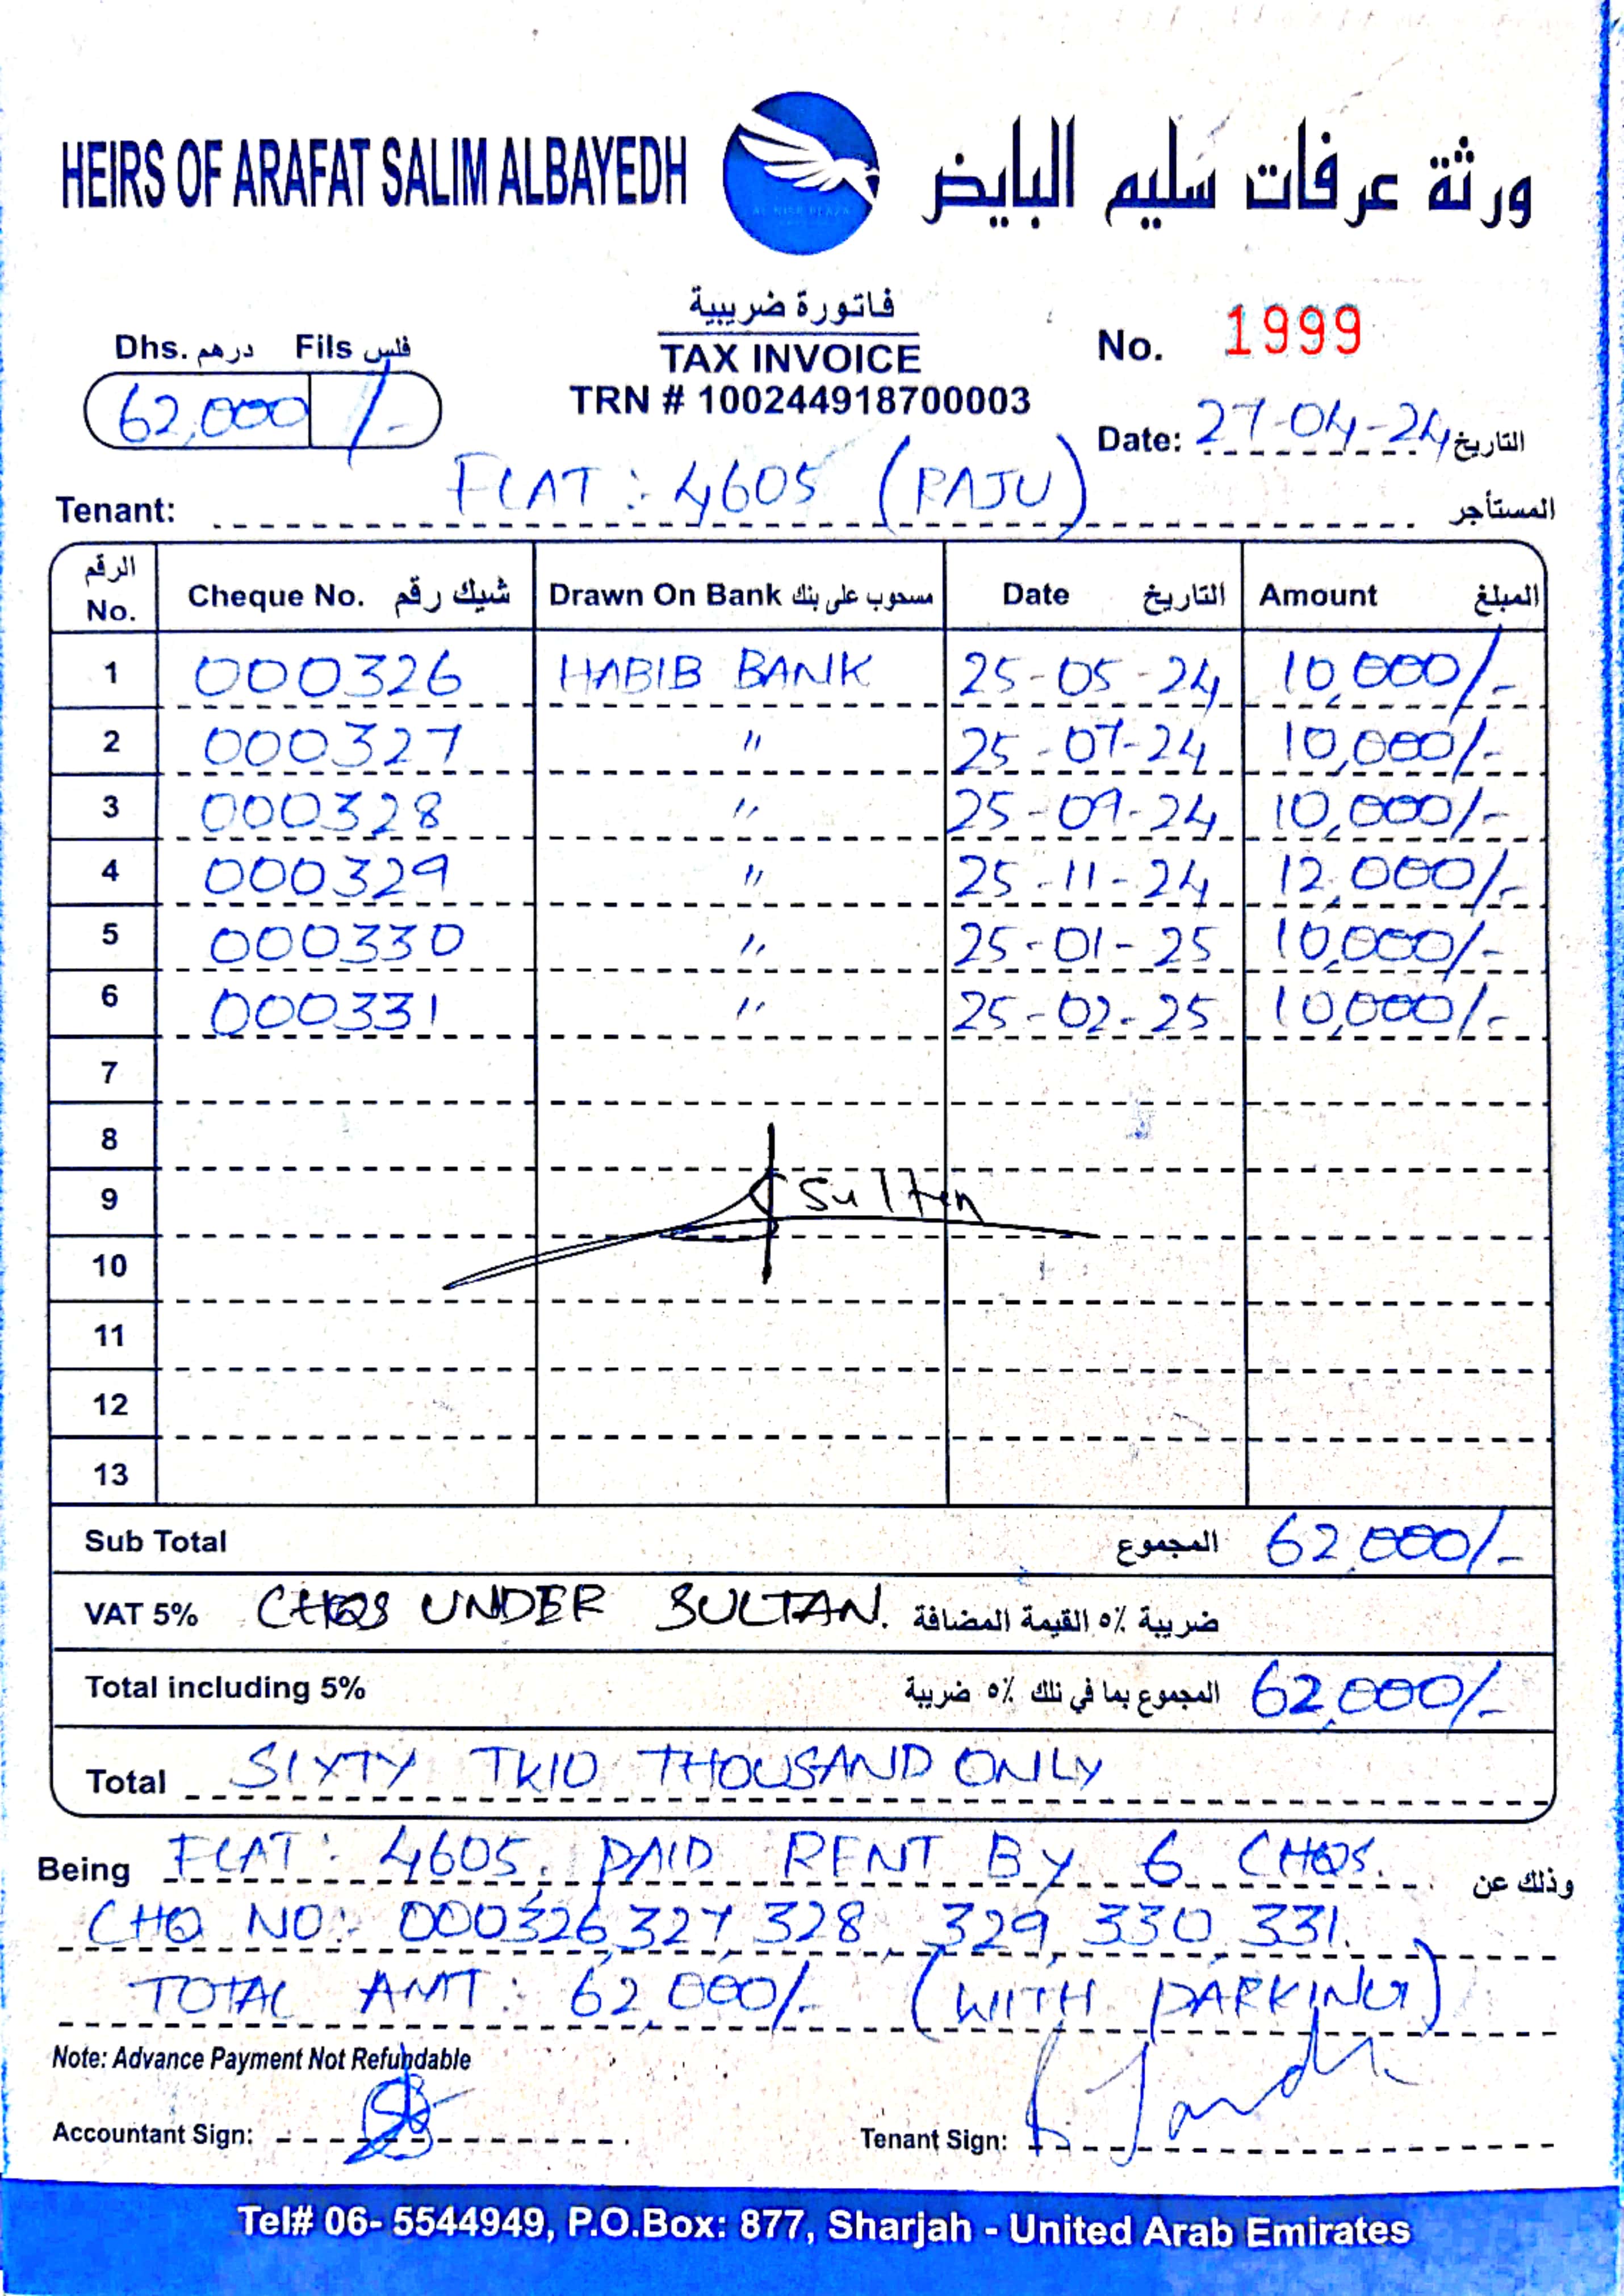 HEIRS OF ARAFAT SALIM ALBAYEDH ورثة عرفات سليم البايض
فاتورة ضريبية
TAX INVOICE
TRN # 100244918700003
Dhs. درهم Fils فلس
62,000 /-
No. 1999
Date: 27-04-24 التاريخ
Tenant: FLAT : 4605 (RAJU) المستأجر
الرقم No. Cheque No. شيك رقم Drawn On Bank مسحوب على بنك Date التاريخ Amount المبلغ
1 000326 HABIB BANK 25-05-24 10,000/-
2 000327 " 25-07-24 10,000/-
3 000328 " 25-09-24 10,000/-
4 000329 " 25-11-24 12,000/-
5 000330 " 25-01-25 10,000/-
6 000331 " 25-02-25 10,000/-
7
8
9 Sultan
10
11
12
13
Sub Total المجموع 62,000/-
VAT 5% CHQS UNDER SULTAN. ضريبة ٥٪ القيمة المضافة
Total including 5% المجموع بما في تلك ٥٪ ضريبة 62,000/-
Total SIXTY TWO THOUSAND ONLY
Being FLAT : 4605, PAID RENT BY 6 CHQS. وذلك عن
CHQ NO:- 000326,327,328, 329, 330, 331.
TOTAL AMT : 62,000/- (WITH PARKING)
Note: Advance Payment Not Refundable
Accountant Sign:
Tenant Sign:
Tel# 06- 5544949, P.O.Box: 877, Sharjah - United Arab Emirates